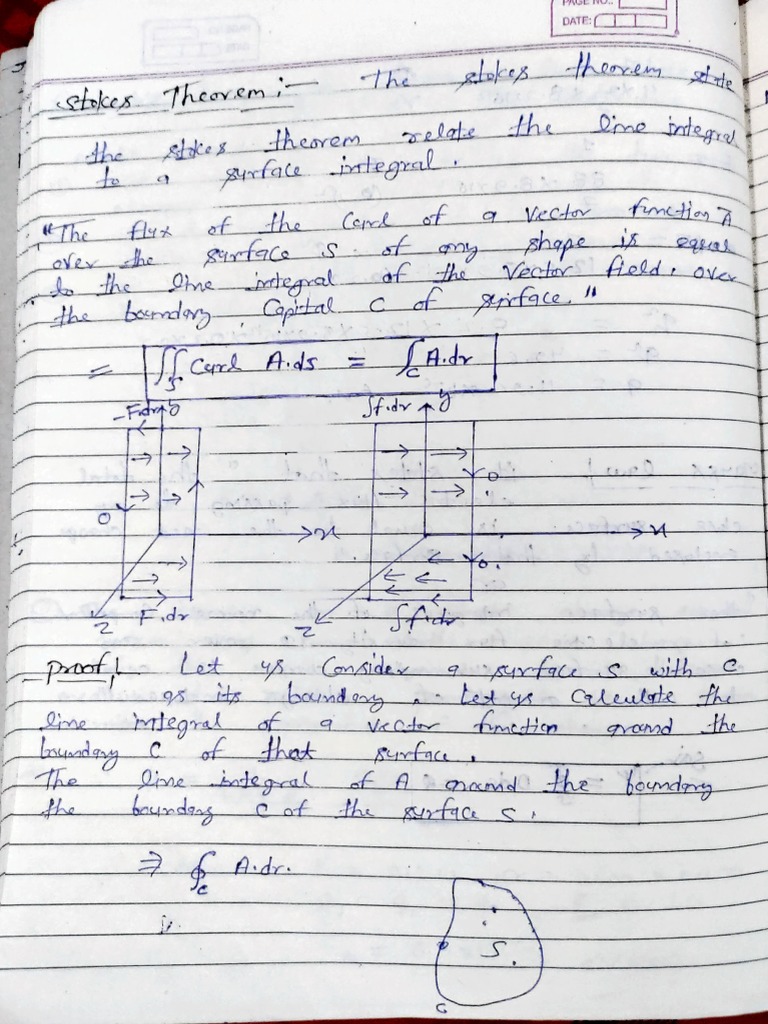 PAGE NO.:
DATE:
Stokes Theorem :- The stokes theorem state
the stokes theorem relate the line integral
to a surface integral.
"The flux of the Carl of a vector function A
over the surface S of any shape is equal
to the line integral of the Vector field, over
the boundary Capital C of surface."
= ∬S Curl A.ds = ∫C A.dr
-F.dr y
∫f.dr y
0
0
x
x
0.
z
F.dr
z
∫f.dr
Proof :- Let us Consider a surface S with C
as its boundary. Let us Calculate the
line integral of a vector function around the
boundary C of that surface.
The line integral of A around the boundary
the boundary C of the surface S.
⇒ ∮C A.dr.
S.
C